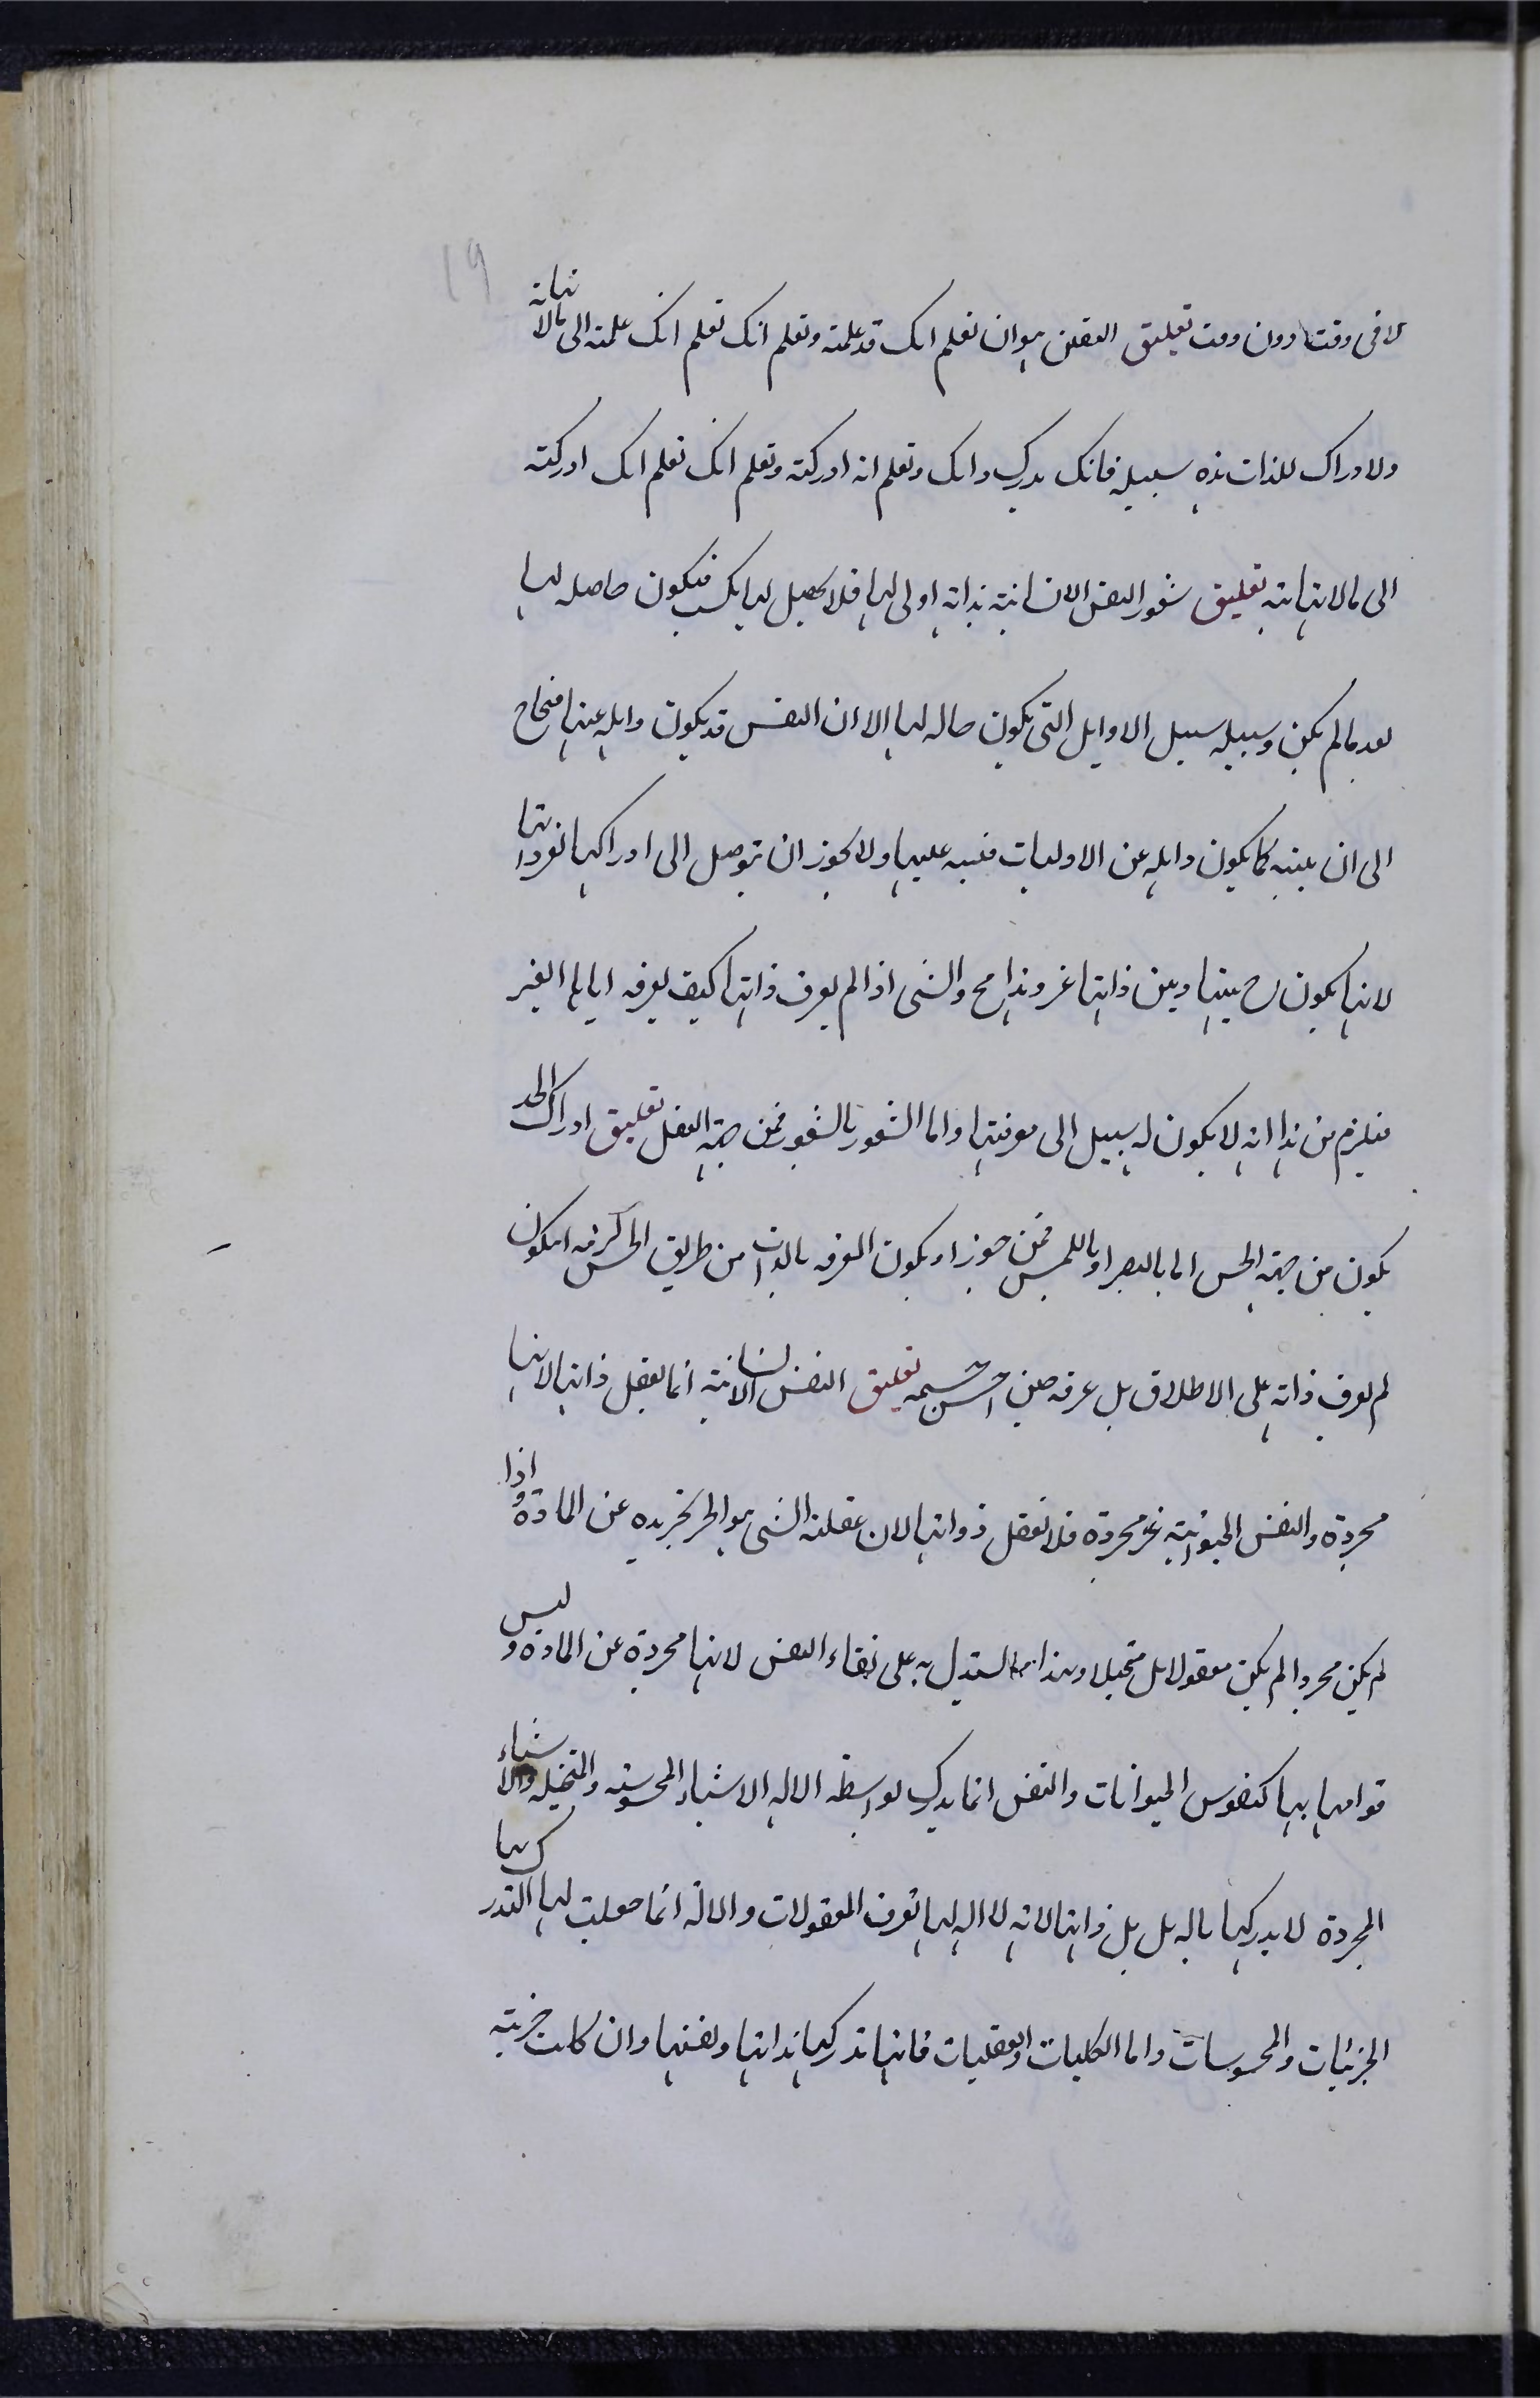 19
لا فی وقت دون وقت تعلیق التعقل هو ان تعلم انک قد علمته وتعلم انک تعلم انک علمته الی مالا نهایة
ولادراک للذات هذه سبیله فانک تدرک ذاتک وتعلم انه ادرکته وتعلم انک تعلم انک ادرکته
الی مالانهایته تعلیق شعور النفس الانسانیة بذاته اولی لها فلا یحصل لها بکسب فیکون حاصله لها
بعد مالم یکن وسبیله سبیل الاوایل التی یکون حاله لها الا ان النفس قد یکون ذاهله عنها فتحتاج
الی ان ینبه کما یکون ذاهله عن الاولیات فینبه علیها ولا یجوز ان یتوصل الی ادراکها لغیر ذاتها
لانها یکون ح بینها وبین ذاتها غیر وهذا مح والشی اذا لم یعرف ذاتها کیف یعرفه ایاها الغیر
فیلزم من هذا انه لا یکون له سبیل الی معرفتها واما الشعور بالشعور فمن جهة العقل تعلیق ادراک الجسد
یکون من جهة الحس اما بالبصر او باللمس فمن جوز ان یکون المعرفه بالذات من طریق الحس کرفه ان یکون
لم یعرف ذاته علی الاطلاق بل عرفه حین احس بجسمه تعلیق النفس الانسانیة انما تعقل ذاتها لانها
مجردة والنفس الحیوانیة غیر مجردة فلا تعقل ذواتها لان عقلیة الشی هو تجریده عن المادة واذا
لم یکن مجردا لم یکن معقولا بل متخیلا وهذا مما استدل به علی بقاء النفس لانها مجردة عن المادة ولیس
قوامها بها کنفوس الحیوانات والنفس انما تدرک بواسطه الاله الاشیاء المحسوسه والمتخیله والاشیاء
المجردة لا یدرکها باله بل بذاتها لانه لا اله لها تعرف المعقولات والالة انما جعلت لها لتدرک بها
الجزئیات والمحسوسات واما الکلیات والعقلیات فانها تدرکها بذاتها ونفسها وان کانت جزئیه